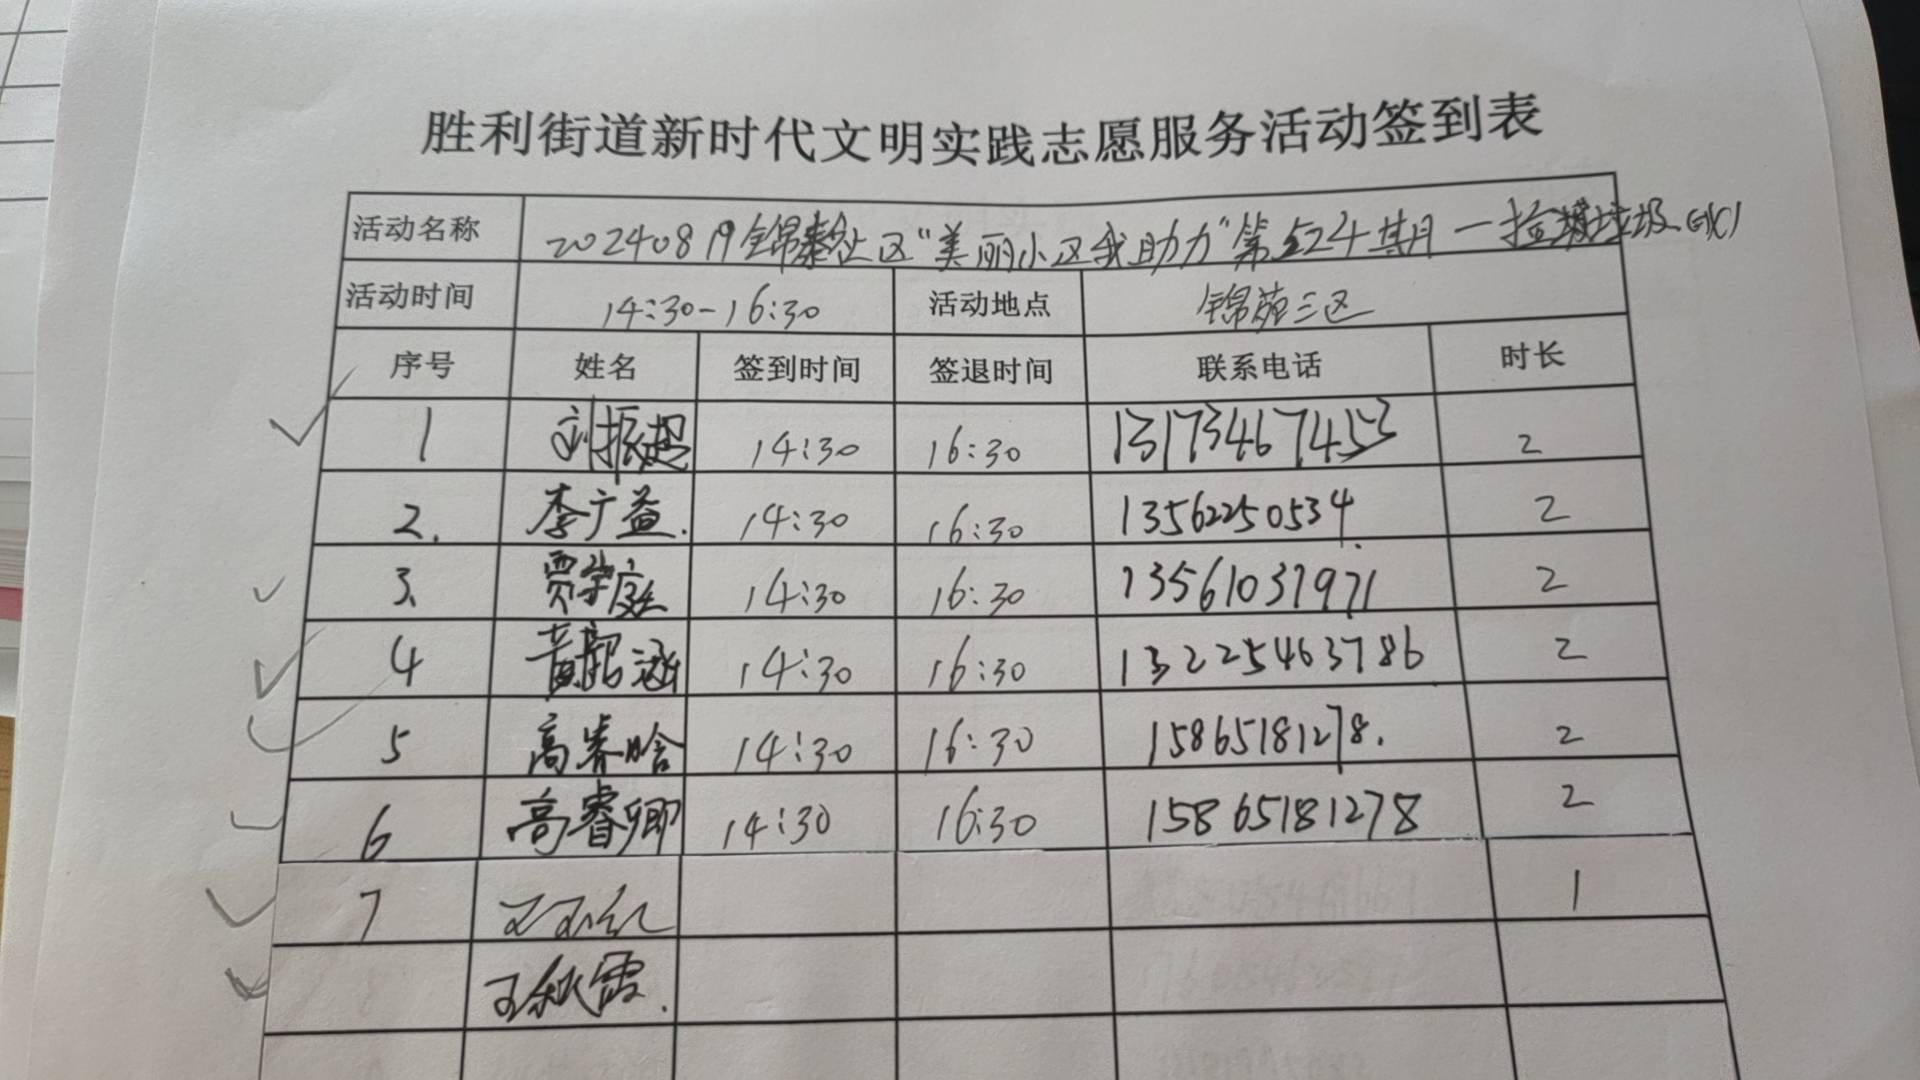 胜利街道新时代文明实践志愿服务活动签到表
活动名称 20240819锦泰社区“美丽小区我助力”第524期一捡拾垃圾
活动时间 14:30-16:30 活动地点 锦苑三区
序号 姓名 签到时间 签退时间 联系电话 时长
1 刘振超 14:30 16:30 13173467453 2
2. 李广益. 14:30 16:30 13562250534 2
3. 贾学庭 14:30 16:30 13561031971 2
4 黄韶涵 14:30 16:30 132225463786 2
5 高睿晗 14:30 16:30 15865181278. 2
6 高睿卿 14:30 16:30 15865181278 2
7 王玉红 1
王秋霞.